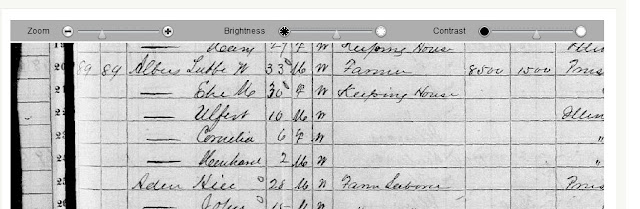 Zoom Brightness Contrast
Keeping House
20 89 89 Albers Lubbe W 33 M W Farmer 8500 1500 Prus
21 — Elre M 30 F W Keeping House
— Ulfert 10 M W Illin
— Cornelia 6 F W "
— Meinhard 2 M W "
Aden Hice 28 M W Farm Laborer Prus
— John